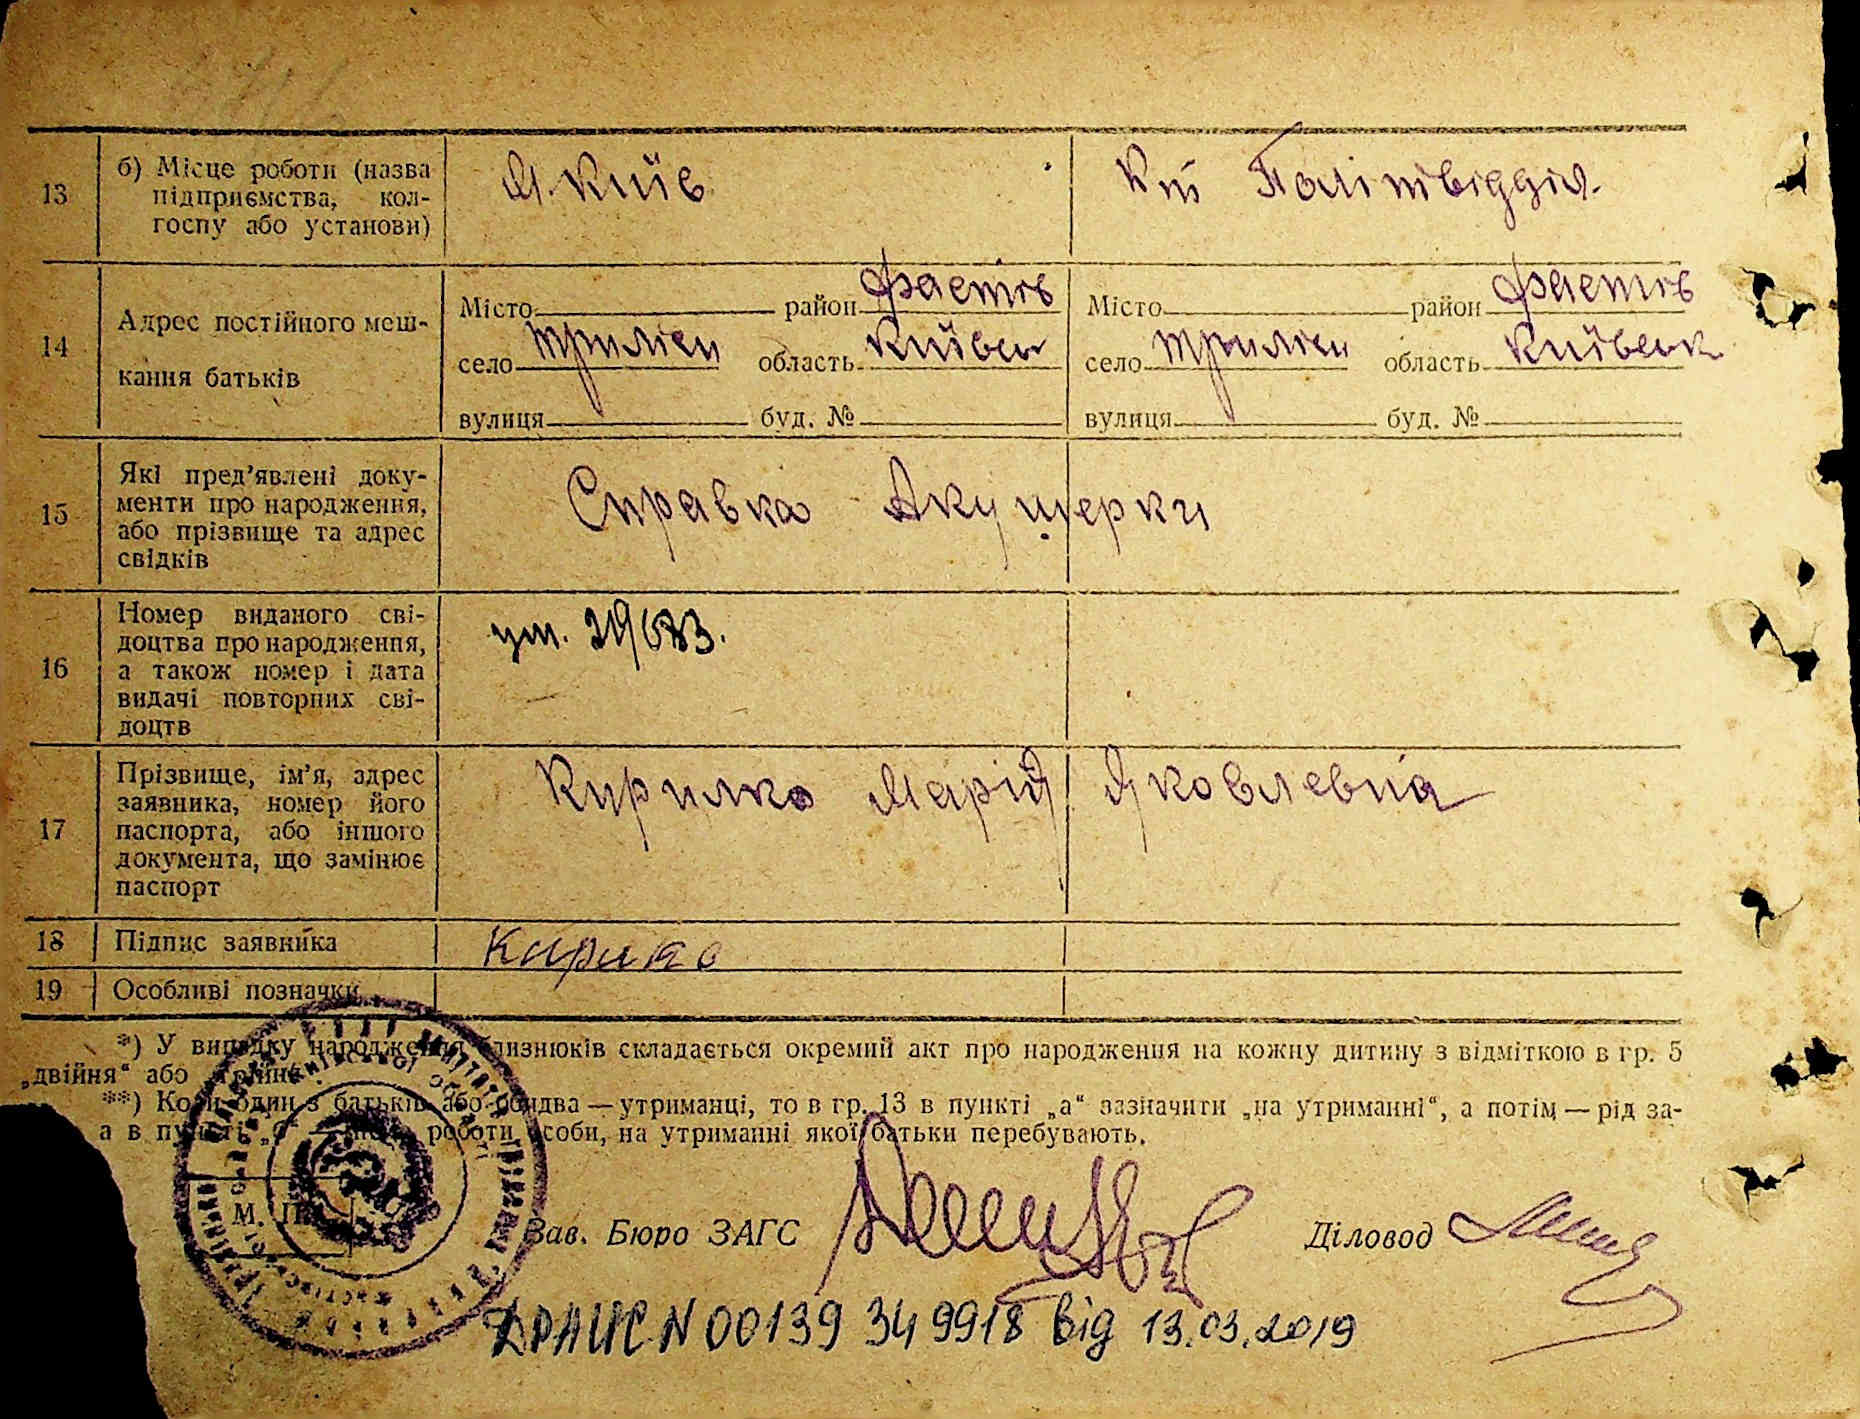 13
б) Місце роботи (назва
підприємства, кол-
госпу або установи)
м. Київ
Політвідділ
14
Адрес постійного меш-
кання батьків
Місто район Фастів
село Триліси область Київськ
вулиця буд. №
Місто район Фастів
село Триліси область Київськ
вулиця буд. №
15
Які пред'явлені доку-
менти про народження,
або прізвище та адрес
свідків
Справка Акушерки
16
Номер виданого сві-
доцтва про народження,
а також номер і дата
видачі повторних сві-
доцтв
17
Прізвище, ім'я, адрес
заявника, номер його
паспорта, або іншого
документа, що замінює
паспорт
Кирилко Марія Яковлевна
18
Підпис заявника
19
Особливі позначки
*) У випадку народження близнюків складається окремий акт про народження на кожну дитину з відміткою в гр. 5
„двійня“ або
**) Коли один з батьків або обидва — утриманці, то в гр. 13 в пункті „а“ зазначити „на утриманні“, а потім — рід за-
а в пункті роботи особи, на утриманні якої батьки перебувають.
М. П.
Зав. Бюро ЗАГС
Діловод
ДРАЦС N 00139 34 9918 від 13.03.2019